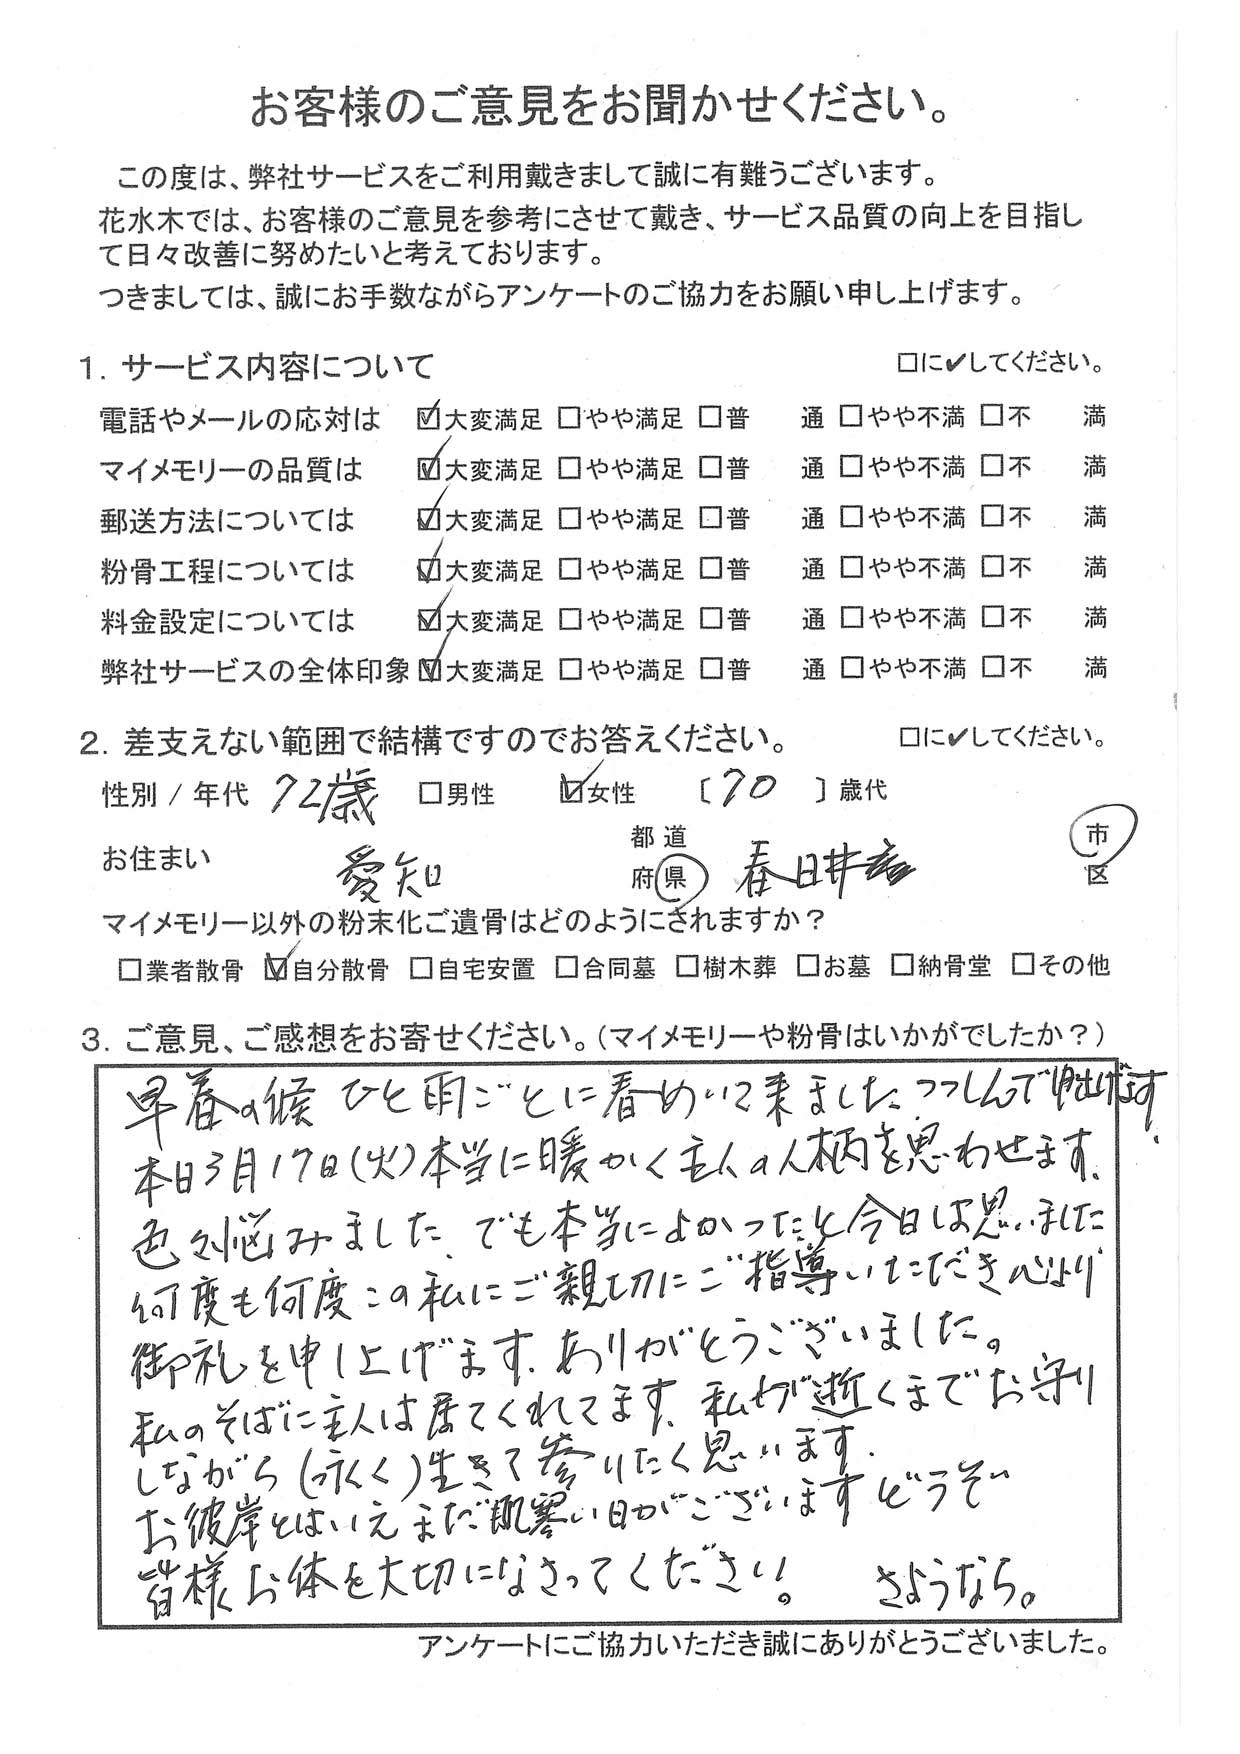 お客様のご意見をお聞かせください。
この度は、弊社サービスをご利用戴きまして誠に有難うございます。
花水木では、お客様のご意見を参考にさせて戴き、サービス品質の向上を目指し
て日々改善に努めたいと考えております。
つきましては、誠にお手数ながらアンケートのご協力をお願い申し上げます。
1. サービス内容について □に✔してください。
電話やメールの応対は ☑大変満足 □やや満足 □普 通 □やや不満 □不 満
マイメモリーの品質は ☑大変満足 □やや満足 □普 通 □やや不満 □不 満
郵送方法については ☑大変満足 □やや満足 □普 通 □やや不満 □不 満
粉骨工程については ☑大変満足 □やや満足 □普 通 □やや不満 □不 満
料金設定については ☑大変満足 □やや満足 □普 通 □やや不満 □不 満
弊社サービスの全体印象 ☑大変満足 □やや満足 □普 通 □やや不満 □不 満
2. 差支えない範囲で結構ですのでお答えください。 □に✔してください。
性別 / 年代 72歳 □男性 ☑女性 〔 70 〕歳代
お住まい 愛知 都道府県 春日井 市区
マイメモリー以外の粉末化ご遺骨はどのようにされますか？
□業者散骨 ☑自分散骨 □自宅安置 □合同墓 □樹木葬 □お墓 □納骨堂 □その他
3. ご意見、ご感想をお寄せください。（マイメモリーや粉骨はいかがでしたか？）
早春の候 ひと雨ごとに春めいて来ました。つつしんで申上げます、
本日3月17日(火)本当に暖かく主人の人柄を思わせます、
色々悩みました、でも本当によかったと今日は思いました
何度も何度この私にご親切にご指導いただき心より
御礼を申し上げます、ありがとうございました。
私のそばに主人は居てくれてます、私が逝くまでお守り
しながら(永く)生きて参りたく思います、
お彼岸とはいえまだ肌寒い日がございますどうぞ
皆様お体を大切になさってください。 さようなら。
アンケートにご協力いただき誠にありがとうございました。